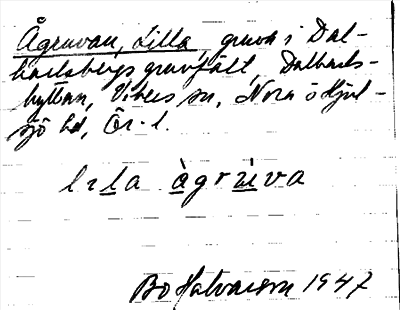 Ågruvan, Lilla, gruva i Dal-
karlsbergs gruvfält, Dalkarls-
hyttan, Vikers sn, Nora o Hjul-
sjö hd, Ör. l.
lıla àgrùva
Bo Halvarson 1947